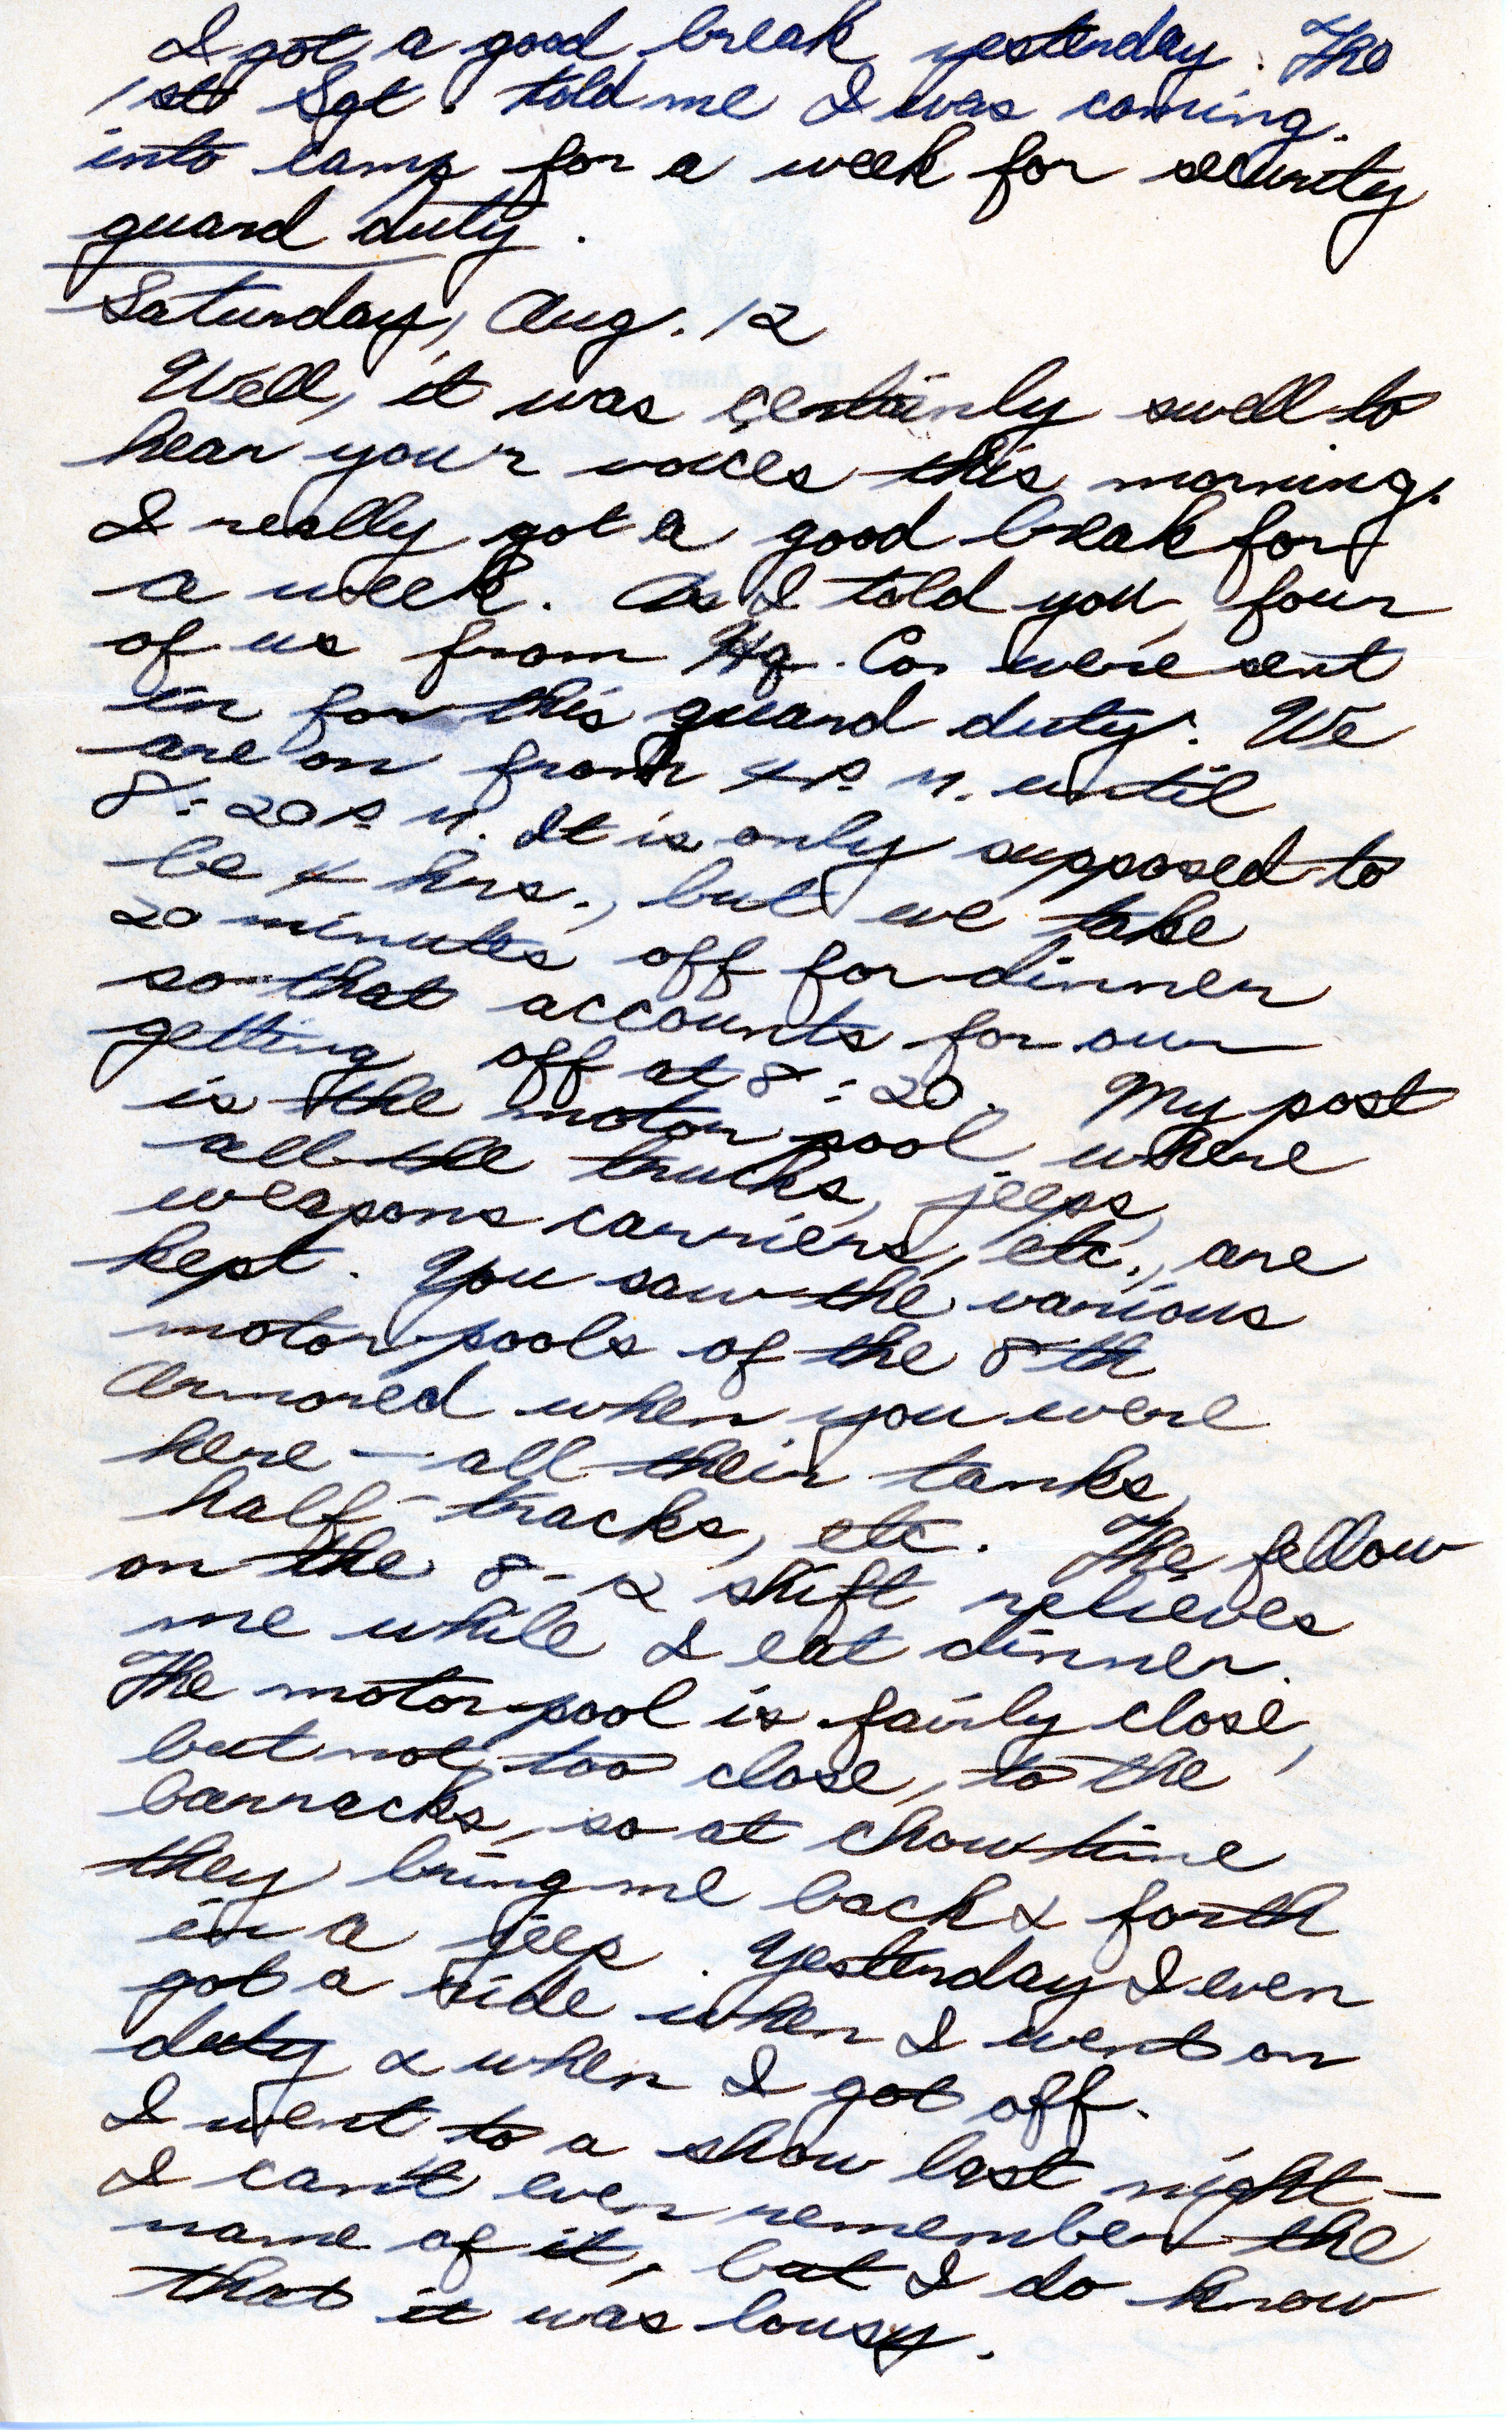 I got a good break yesterday. The
1st Sgt. told me I was coming
into camp for a week for security
guard duty.
Saturday, Aug. 12
U.S. ARMY
Well, it was certainly swell to
hear your voices this morning.
I really got a good break for
a week. As I told you, four
of us from Hq. Co. were sent
in for this guard duty. We
are on from 4 P. M. until
8:20 P. M. It is only supposed to
be 4 hrs., but we take
20 minutes off for dinner
so that accounts for our
getting off at 8:20. My post
is the motor pool, where
all the trucks, jeeps,
weapons carriers, etc., are
kept. You saw the various
motor pools of the 8th
Armored when you were
here — all their tanks,
half-tracks, etc. The fellow
on the 8-12 shift relieves
me while I eat dinner.
The motor pool is fairly close,
but not too close, to the
barracks, so at chow time
they bring me back & forth
in a jeep. Yesterday I even
got a ride when I went on
duty & when I got off.
I went to a show last night —
I can't even remember the
name of it, but I do know
that it was lousy.